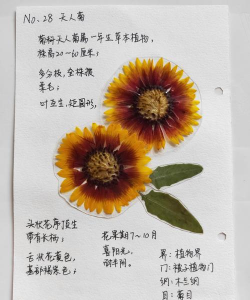 No. 28 天人菊
菊科天人菊属一年生草本植物，
株高20~60厘米；
多分枝，全株被
柔毛；
叶互生，矩圆形，
头状花序顶生
带有长梗；
舌状花黄色，
基部褐紫色；
花果期7~10月
喜阳光，
耐半阴。
界：植物界
门：被子植物门
纲：木兰纲
目：菊目